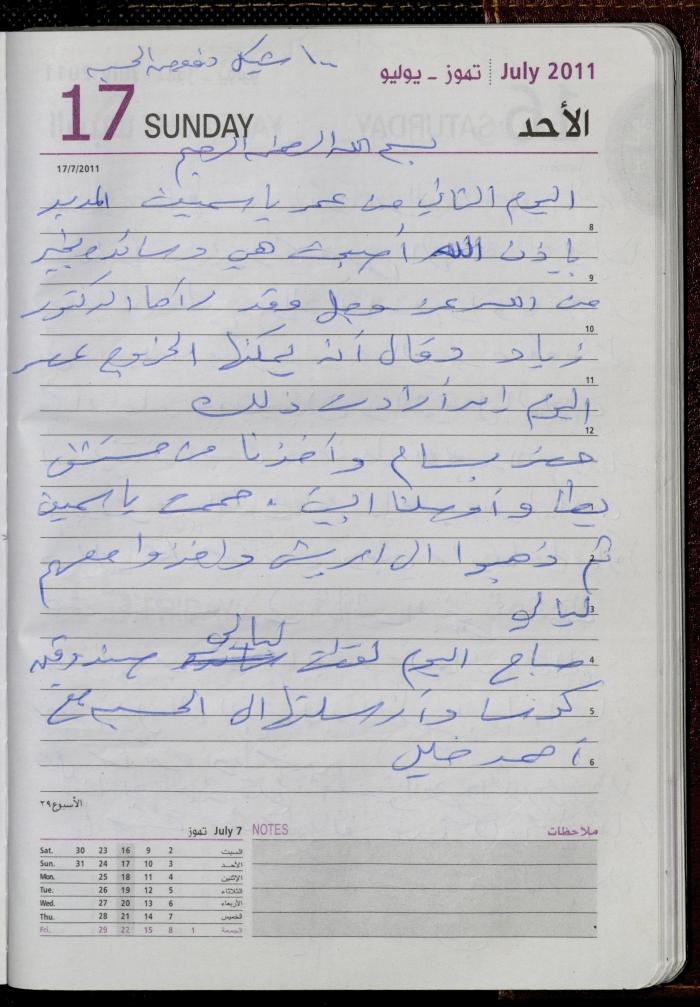 ١٠٠ شيكل دفعة الحسبة
July 2011 تموز - يوليو
17 SUNDAY الأحد
بسم الله الرحمن الرحيم
17/7/2011
اليوم الثاني من عمر ياسمين المديد
8
بإذن الله أصبحت هي وسائدة بخير
9
من الله عز وجل وقد رآها الدكتور
10
زياد وقال أنه يمكنها الخروج عصر
11
اليوم إن أرادت ذلك
12
حضر بسام وأخذنا من مستشفى
يطا وأوصلنا البيت . حممت ياسمين
1
ثم ذهبوا الى وأخذوا معهم
2
ليالي
3
صباح اليوم ليالي صندوقين
4
كوسا وأرسلتها الى الحسبة مع
5
أحمد خليل
6
الأسبوع ٢٩
July 7 تموز
Sat. 30 23 16 9 2 السبت
Sun. 31 24 17 10 3 الأحد
Mon. 25 18 11 4 الإثنين
Tue. 26 19 12 5 الثلاثاء
Wed. 27 20 13 6 الأربعاء
Thu. 28 21 14 7 الخميس
Fri. 29 22 15 8 1 الجمعة
NOTES ملاحظات